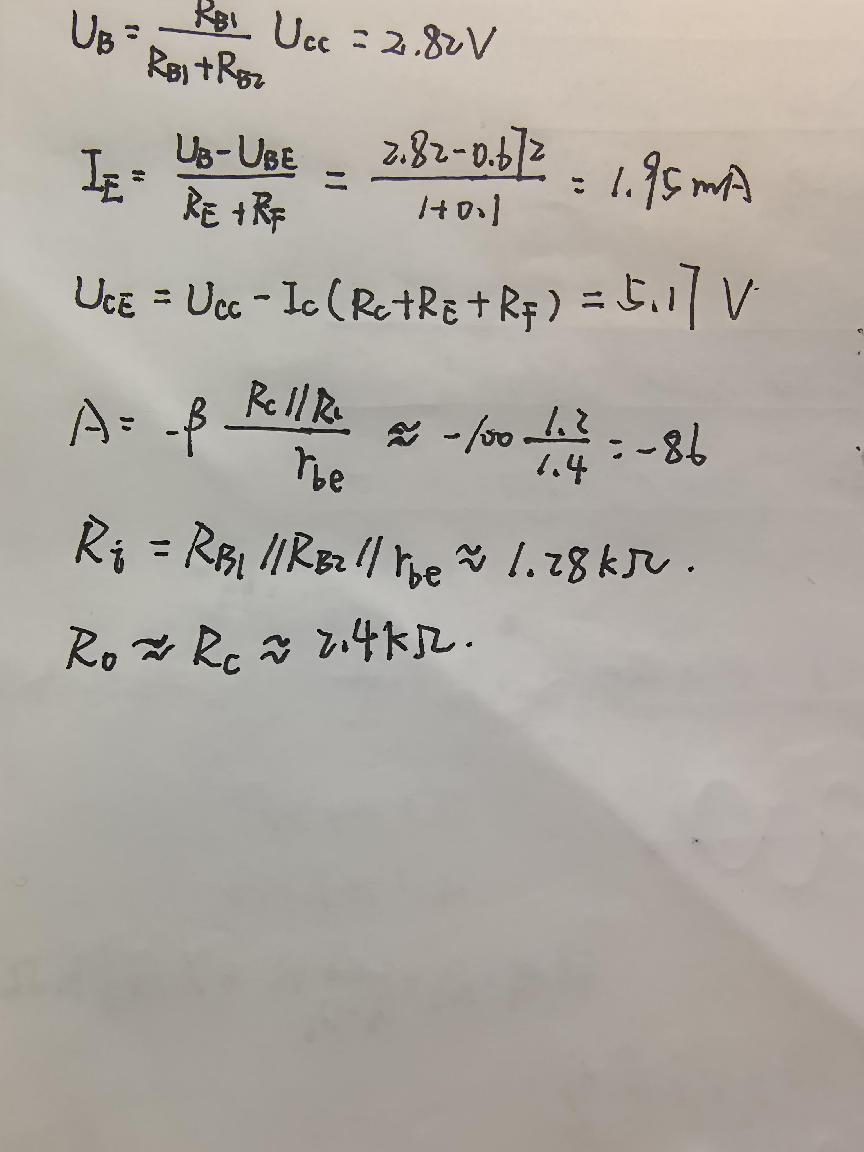 U_B = R_B1 / (R_B1 + R_B2) U_CC = 2.82V
I_E = (U_B - U_BE) / (R_E + R_F) = (2.82 - 0.672) / (1 + 0.1) = 1.95mA
U_CE = U_CC - I_C (R_C + R_E + R_F) = 5.17 V
A = -β (R_C // R_L) / r_be ≈ -100 1.2 / 1.4 = -86
R_i = R_B1 // R_B2 // r_be ≈ 1.28kΩ.
R_o ≈ R_C ≈ 2.4kΩ.